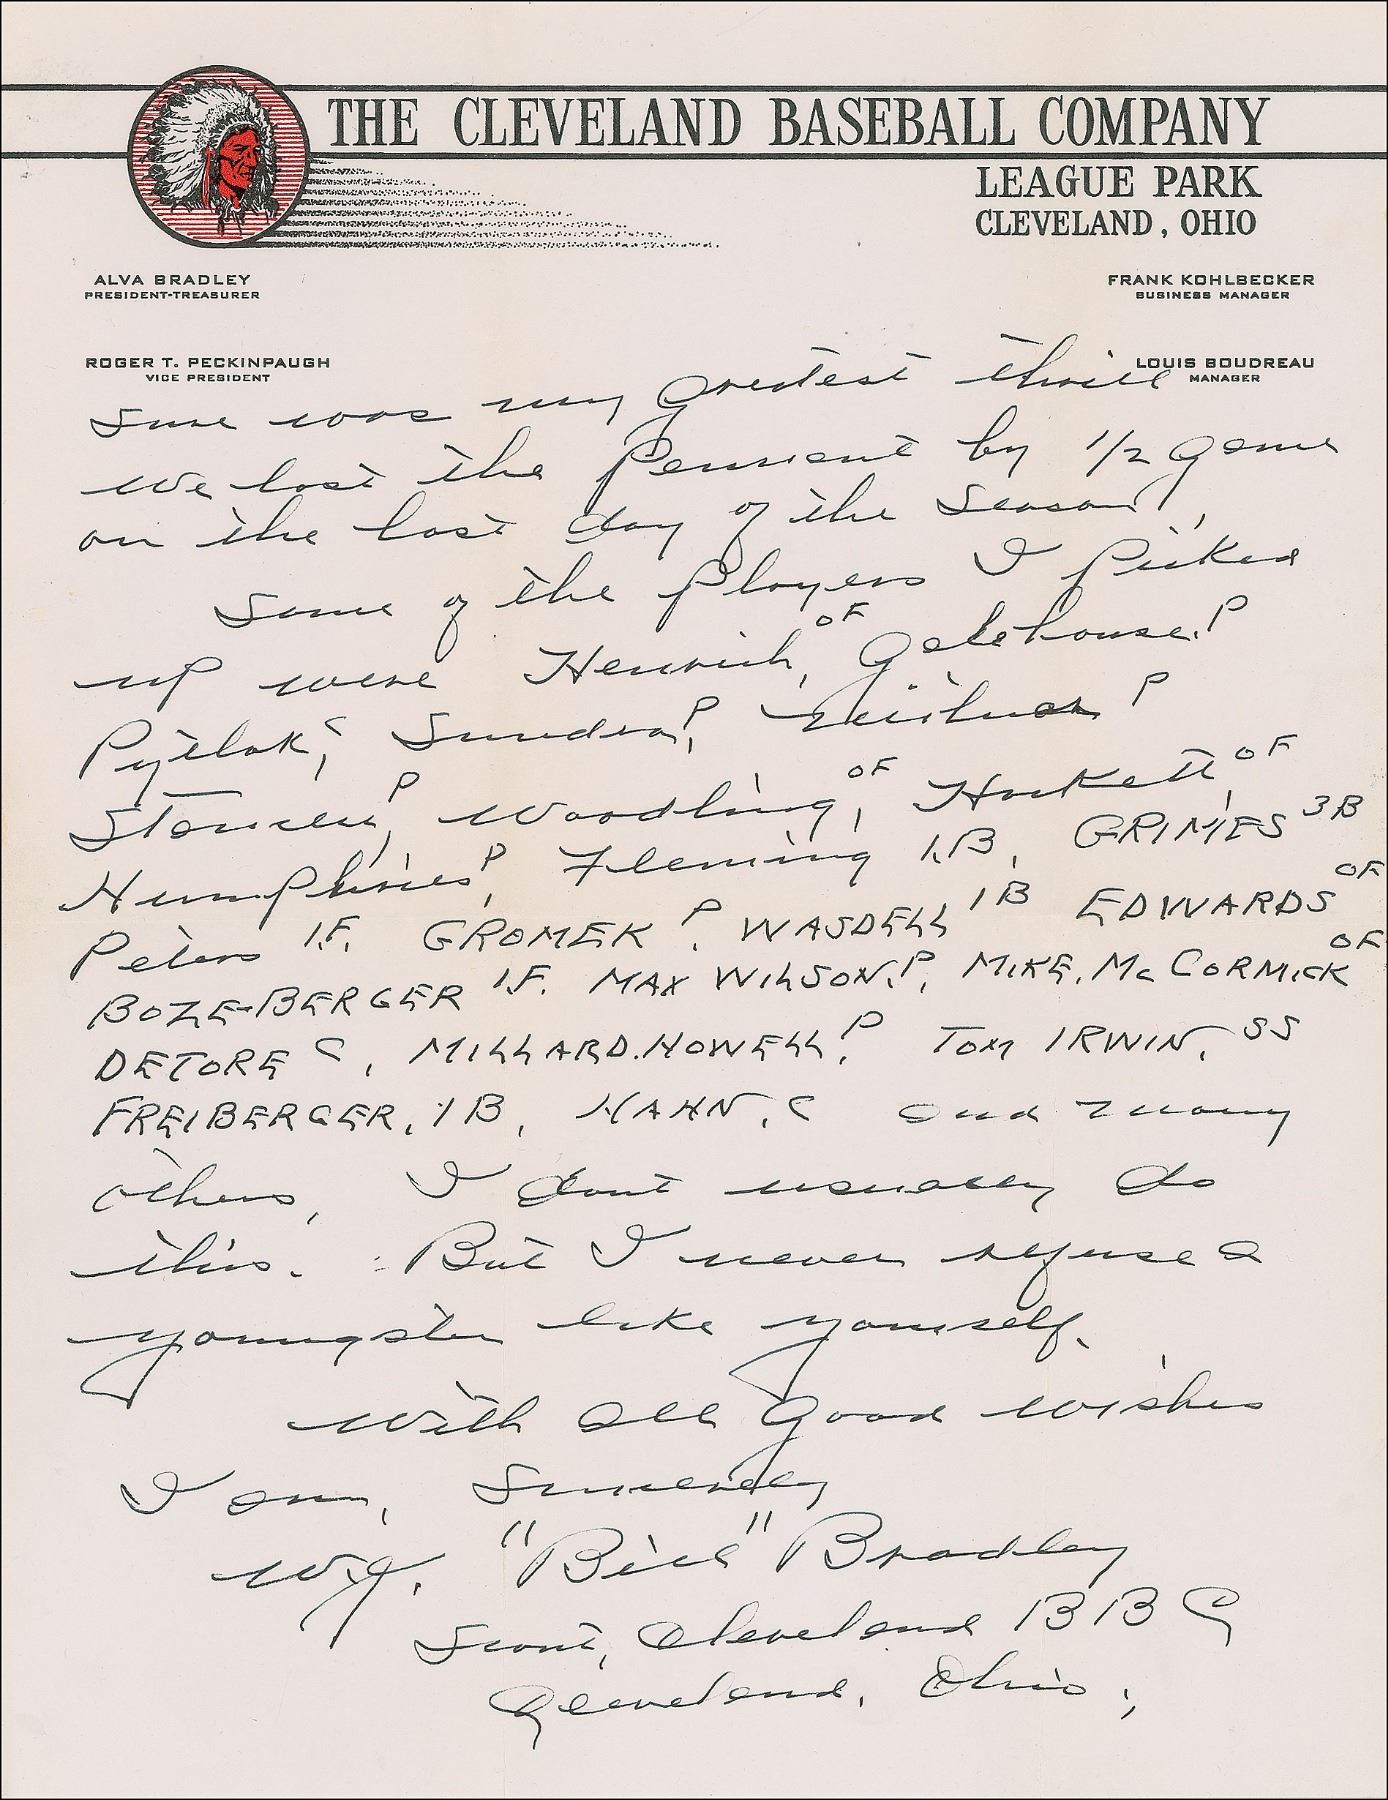 THE CLEVELAND BASEBALL COMPANY
LEAGUE PARK
CLEVELAND, OHIO
ALVA BRADLEY
PRESIDENT-TREASURER
FRANK KOHLBECKER
BUSINESS MANAGER
ROGER T. PECKINPAUGH
VICE PRESIDENT
LOUIS BOUDREAU
MANAGER
Sure was my greatest thrill
We lost the Pennant by 1/2 game
on the last day of the Season,
Some of the Players I Picked
up were Henrich, OF Galehouse, P
Pytlak, C Sundra, P P
P Woodling, OF Hockett, OF
Humphries, P Fleming 1.B, GRIMES 3B
Peters I.F. GROMEK P, WASDELL 1B EDWARDS OF
BOZE-BERGER I.F. MAX WILSON, P, MIKE. McCORMICK OF
DETORE C, MILLARD. HOWELL, P TOM IRWIN, SS
FREIBERGER, 1B, HAHN, C and many
others, I dont usually do
this. But I never refuse a
youngster like yourself.
With all good wishes
I am, Sincerely
W.J. "Bill" Bradley
Scout, Cleveland B B C
Cleveland, Ohio,